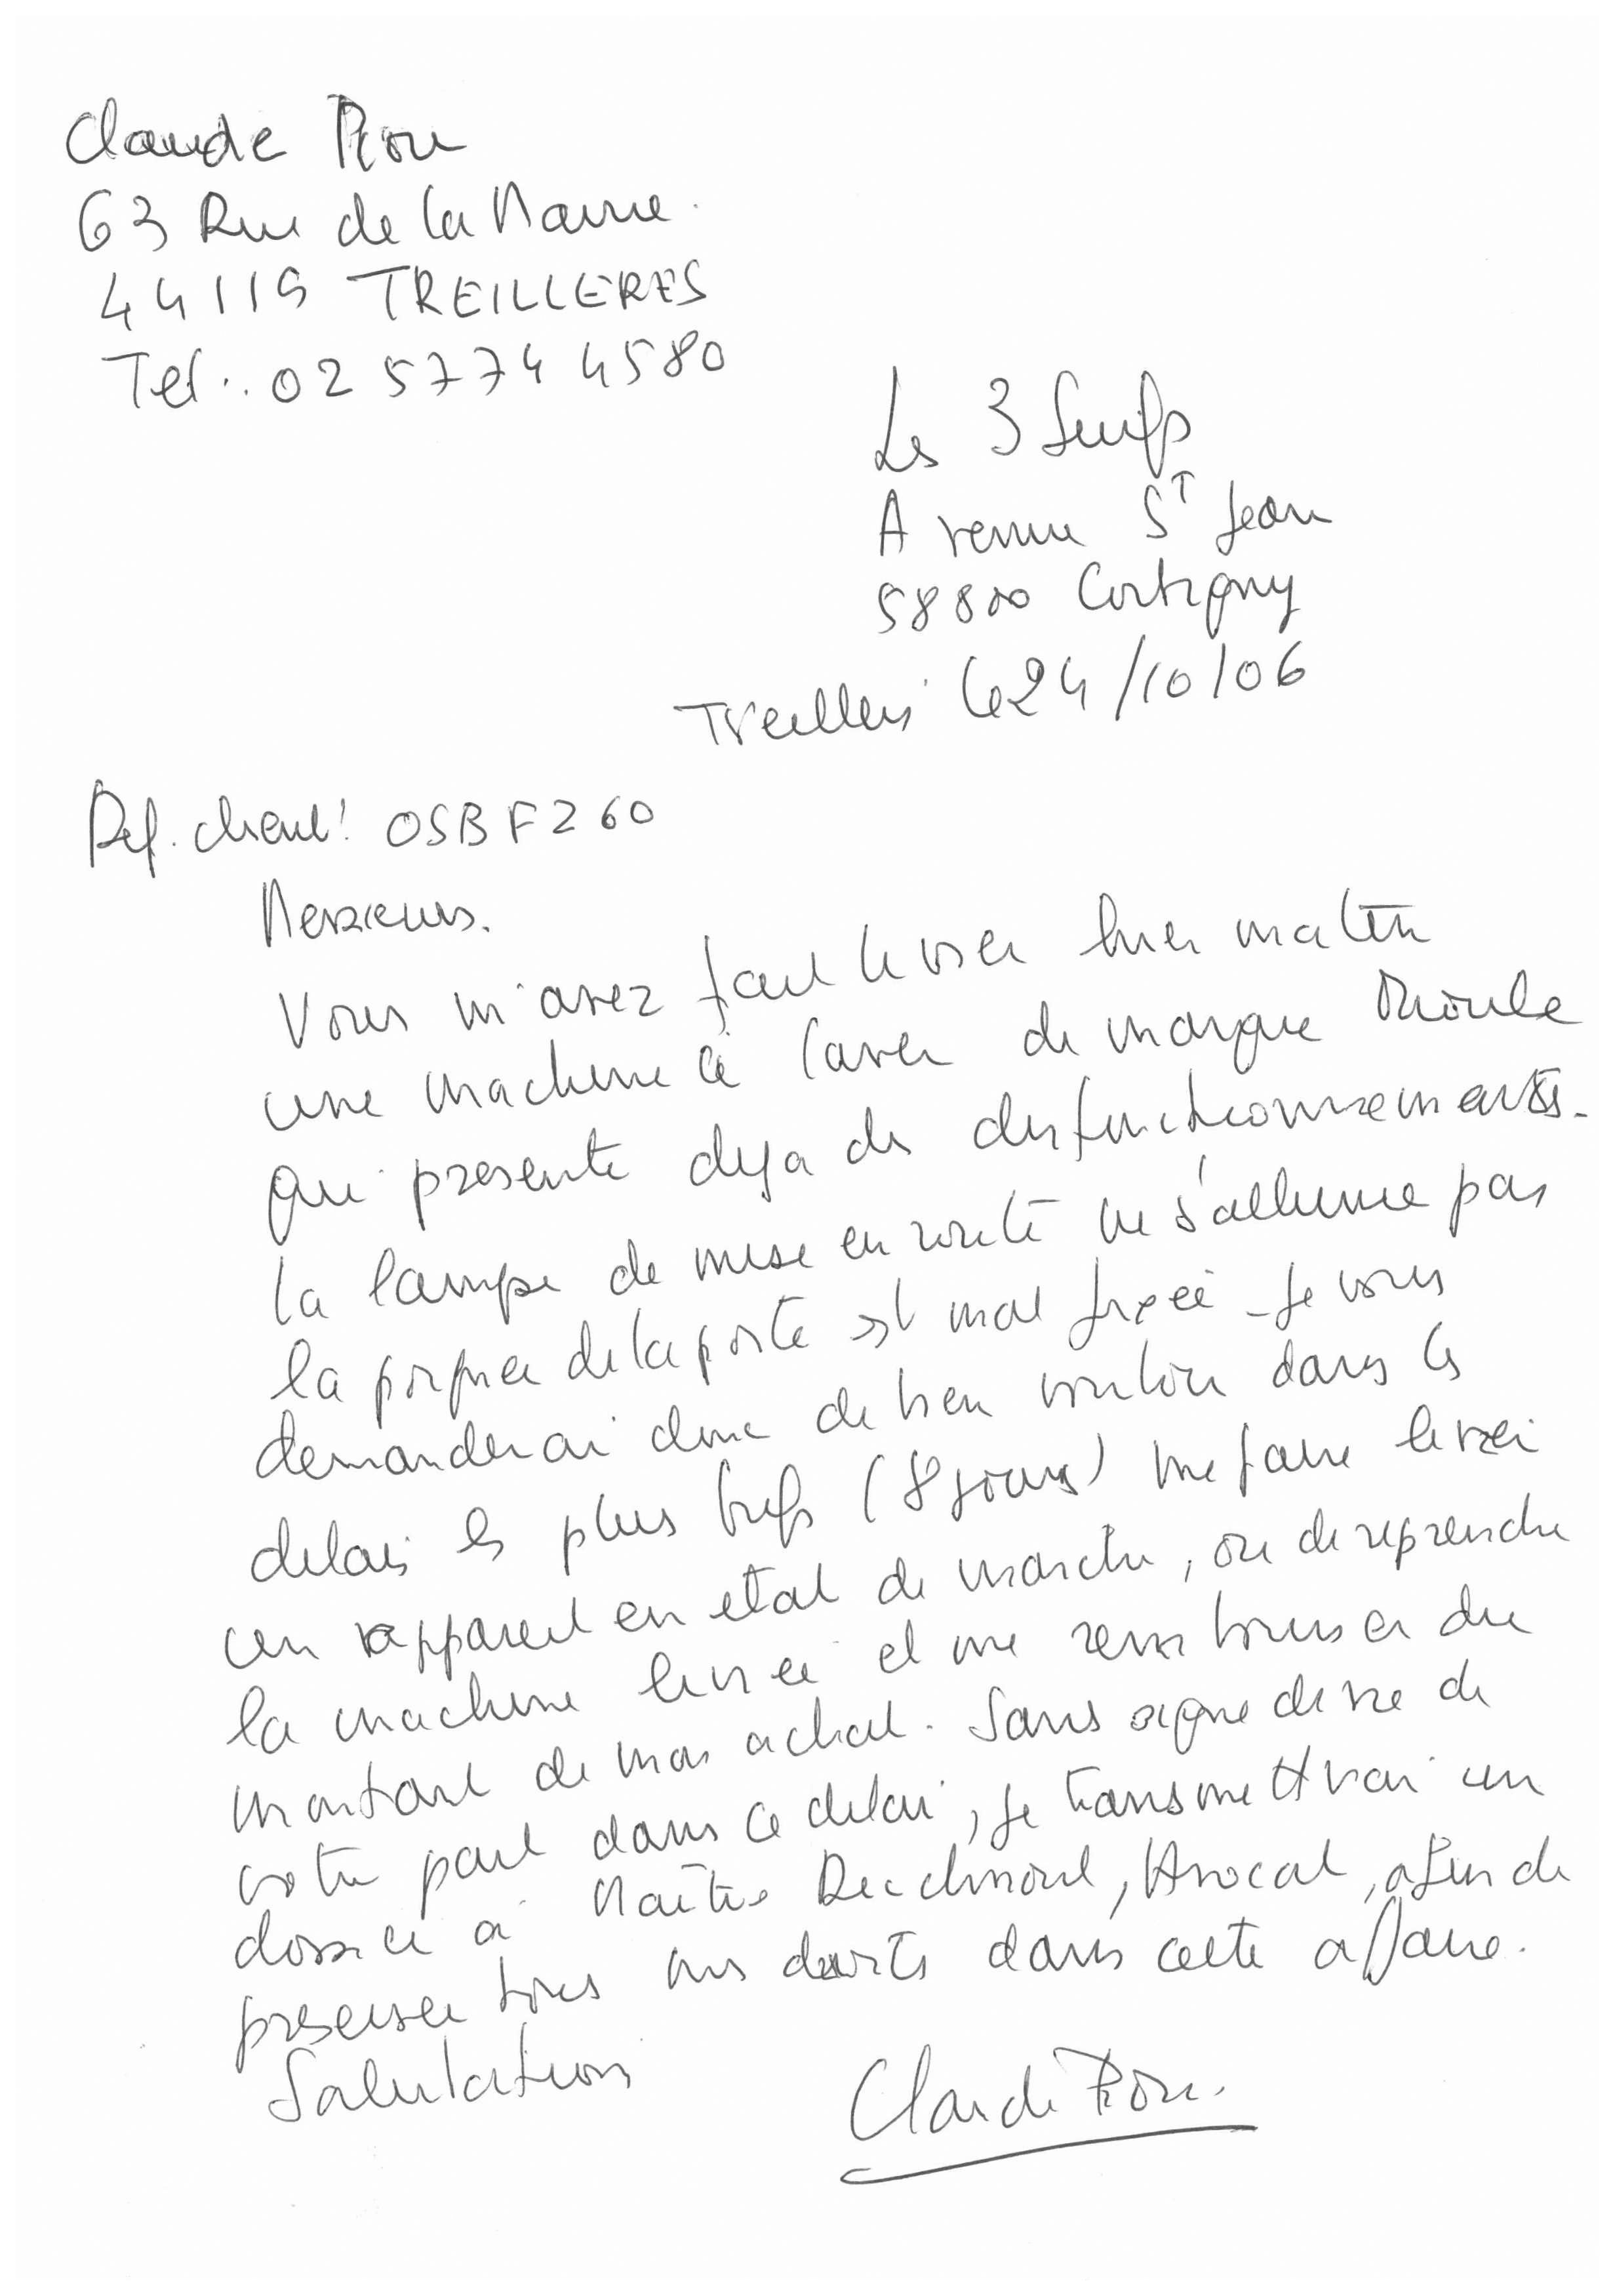 Claude Piou
63 Rue de la Mairie.
44119 TREILLERES
Tel : 02 57 74 45 80
Les 3 Suifs
Avenue ST Jean
58800 Cortigny
le 24/10/06
Ref. client : OSBF260
Messieurs.
Vous m'avez fait livrer hier matin
une machine à laver de marque
qui présente deja des disfonctionnements.
la lampe de mise en route ne s'allume pas
la poignée de la porte est mal fixée - Je vous
demanderai donc de bien vouloir dans les
delais les plus brefs (8 jours) me faire livrer
un appareil en etat de marche, ou de reprendre
la machine livrée et me rembourser du
montant de mon achat. Sans signe de vie de
votre part dans ce delai, je transmettrai un
dossier à Maître Avocat, afin de
préserver tous mes droits dans cette affaire.
Salutations
Claude Piou.